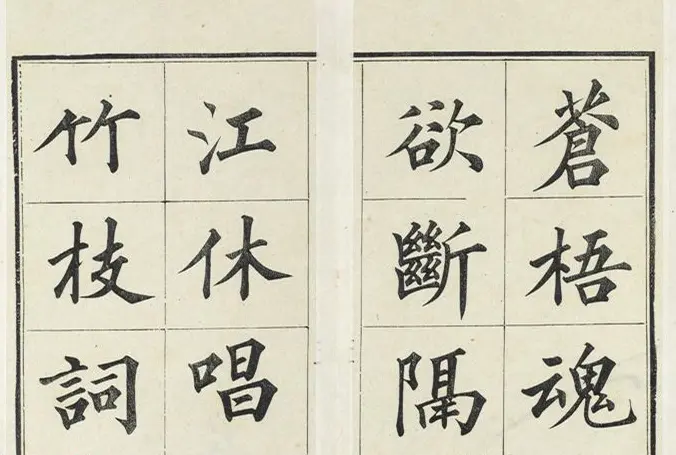 蒼梧魂
欲斷隔
江休唱
竹枝詞